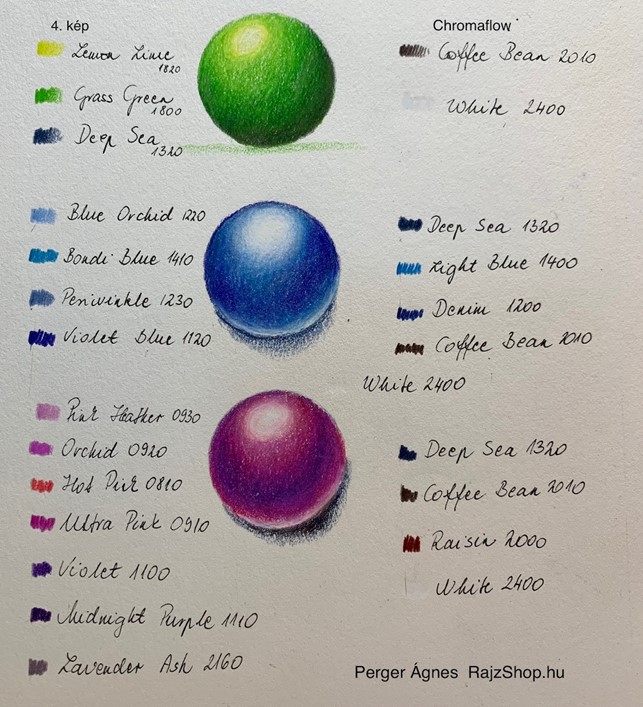 4. kép
Chromaflow
Lemon Lime
1820
Grass Green
1800
Deep Sea
1320
Coffee Bean 2010
White 2400
Blue Orchid 1220
Bondi Blue 1410
Periwinkle 1230
Violet Blue 1120
Deep Sea 1320
Light Blue 1400
Denim 1200
Coffee Bean 2010
White 2400
Pink Heather 0930
Orchid 0920
Hot Pink 0810
Ultra Pink 0910
Violet 1100
Midnight Purple 1110
Lavender Ash 2160
Deep Sea 1320
Coffee Bean 2010
Raisin 2000
White 2400
Perger Ágnes RajzShop.hu